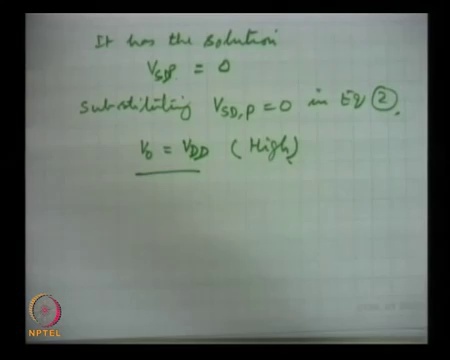 It has the solution
V_SDP = 0
Substituting V_SD,P = 0 in Eq ②.
V_0 = V_DD (High)
NPTEL